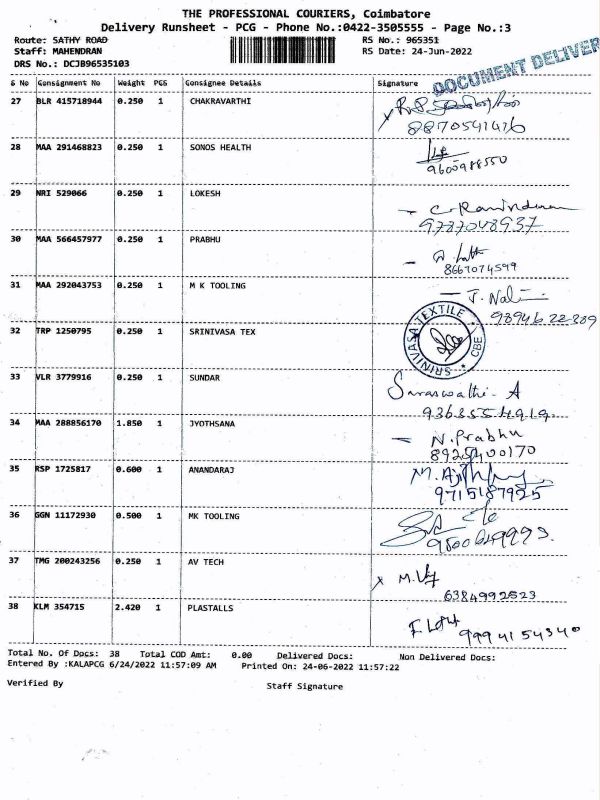 THE PROFESSIONAL COURIERS, Coimbatore
Delivery Runsheet - PCG - Phone No.:0422-3505555 - Page No.:3
Route: SATHY ROAD
RS No.: 965351
Staff: MAHENDRAN
RS Date: 24-Jun-2022
DRS No.: DCJB96535103
DOCUMENT DELIVER
S No Consignment No Weight PCS Consignee Details Signature
27 BLR 415718944 0.250 1 CHAKRAVARTHI
8870541476
28 MAA 291468823 0.250 1 SONOS HEALTH
9600988550
29 NRI 529066 0.250 1 LOKESH
- C. Ravindran
9787048937
30 MAA 566457977 0.250 1 PRABHU
8667074599
31 MAA 292043753 0.250 1 M K TOOLING
98946 22389
32 TRP 1250795 0.250 1 SRINIVASA TEX
SRINIVASA TEXTILE * CBE *
33 VLR 3779916 0.250 1 SUNDAR
Saraswathi - A
34 MAA 288856170 1.850 1 JYOTHSANA
- N. Prabhu
8925400170
35 RSP 1725817 0.600 1 ANANDARAJ
9715187925
36 GGN 11172930 0.500 1 MK TOOLING
37 TMG 200243256 0.250 1 AV TECH
6384992623
38 KLM 354715 2.420 1 PLASTALLS
9994154340
Total No. Of Docs: 38 Total COD Amt: 0.00 Delivered Docs: Non Delivered Docs:
Entered By :KALAPCG 6/24/2022 11:57:09 AM Printed On: 24-06-2022 11:57:22
Verified By Staff Signature